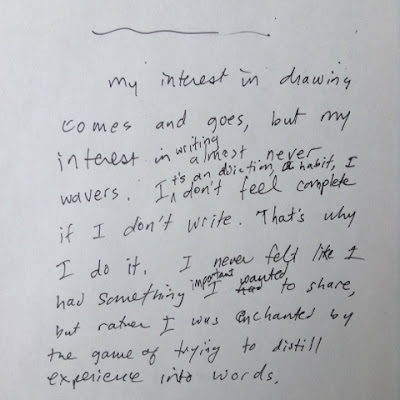 my interest in drawing
comes and goes, but my
interest in writing almost never
wavers. It's an addiction, a habit, I
don't feel complete
if I don't write. That's why
I do it. I never felt like I
had something important I wanted to share,
but rather I was enchanted by
the game of trying to distill
experience into words.